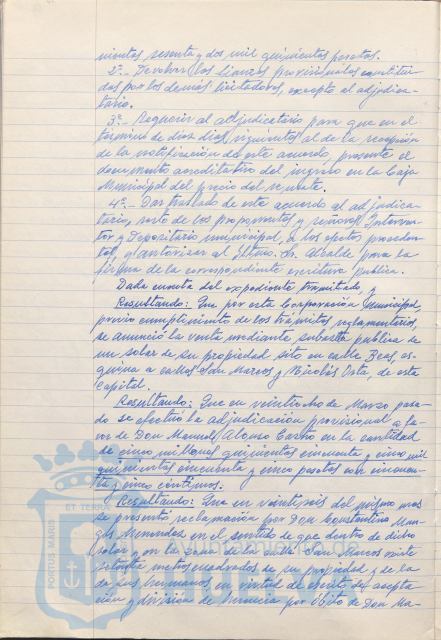 nientas sesenta y dos mil quinientas pesetas.
2º.- Devolver las fianzas provisionales constitui-
das por los demás licitadores, excepto al adjudica-
tario.
3º.- Requerir al adjudicatario para que en el
término de diez días, siguientes al de la recepción
de la notificación de este acuerdo, presente el
documento acreditativo del ingreso en la Caja
Municipal del precio del remate.
4º.- Dar traslado de este acuerdo al adjudica-
tario, resto de los proponentes y señores Interven-
tor y Depositario municipal, a los efectos proceden-
tes, y autorizar al Iltmo. Sr. Alcalde para la
firma de la correspondiente escritura pública.
Dada cuenta del expediente tramitado, y
Resultando: Que por esta Corporación Municipal,
previo cumplimiento de los trámites reglamentarios,
se anunció la venta mediante subasta pública de
un solar de su propiedad sito en calle Beas es-
quina a calles San Marcos y Nicolás Orta, de esta
capital.
Resultando: Que en veintiocho de Marzo pasa-
do se efectuó la adjudicación provisional a fa-
vor de Don Manuel Alonso en la cantidad
de cinco millones quinientas cincuenta y cinco mil
quinientas cincuenta y cinco pesetas con cincuen-
ta y cinco céntimos.
Resultando: Que en veintiseis del mismo mes
se presentó reclamación por Don Constantino
en el sentido de que dentro de dicho
solar y en la zona de la calle San Marcos existe
setenta metros cuadrados de su propiedad y de la
de sus hermanos en virtud de escrito de acepta-
ción y división de herencia por óbito de Don Ma-
PORTUS MARIS
ET TERRAE